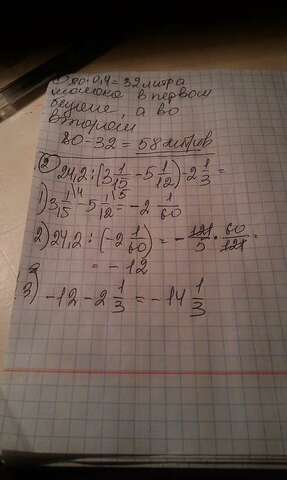 ① 80·0,4=32 литра
молока в первом
бидоне, а во
втором
80-32=58 литров
② 24,2:(3 1/15 - 5 1/12) - 2 1/3 =
1) 3 1/15 \4 - 5 1/12 \5 = -2 1/60
2) 24,2:(-2 1/60) = - 121/5 · 60/121 =
= -12
3) -12 - 2 1/3 = -14 1/3